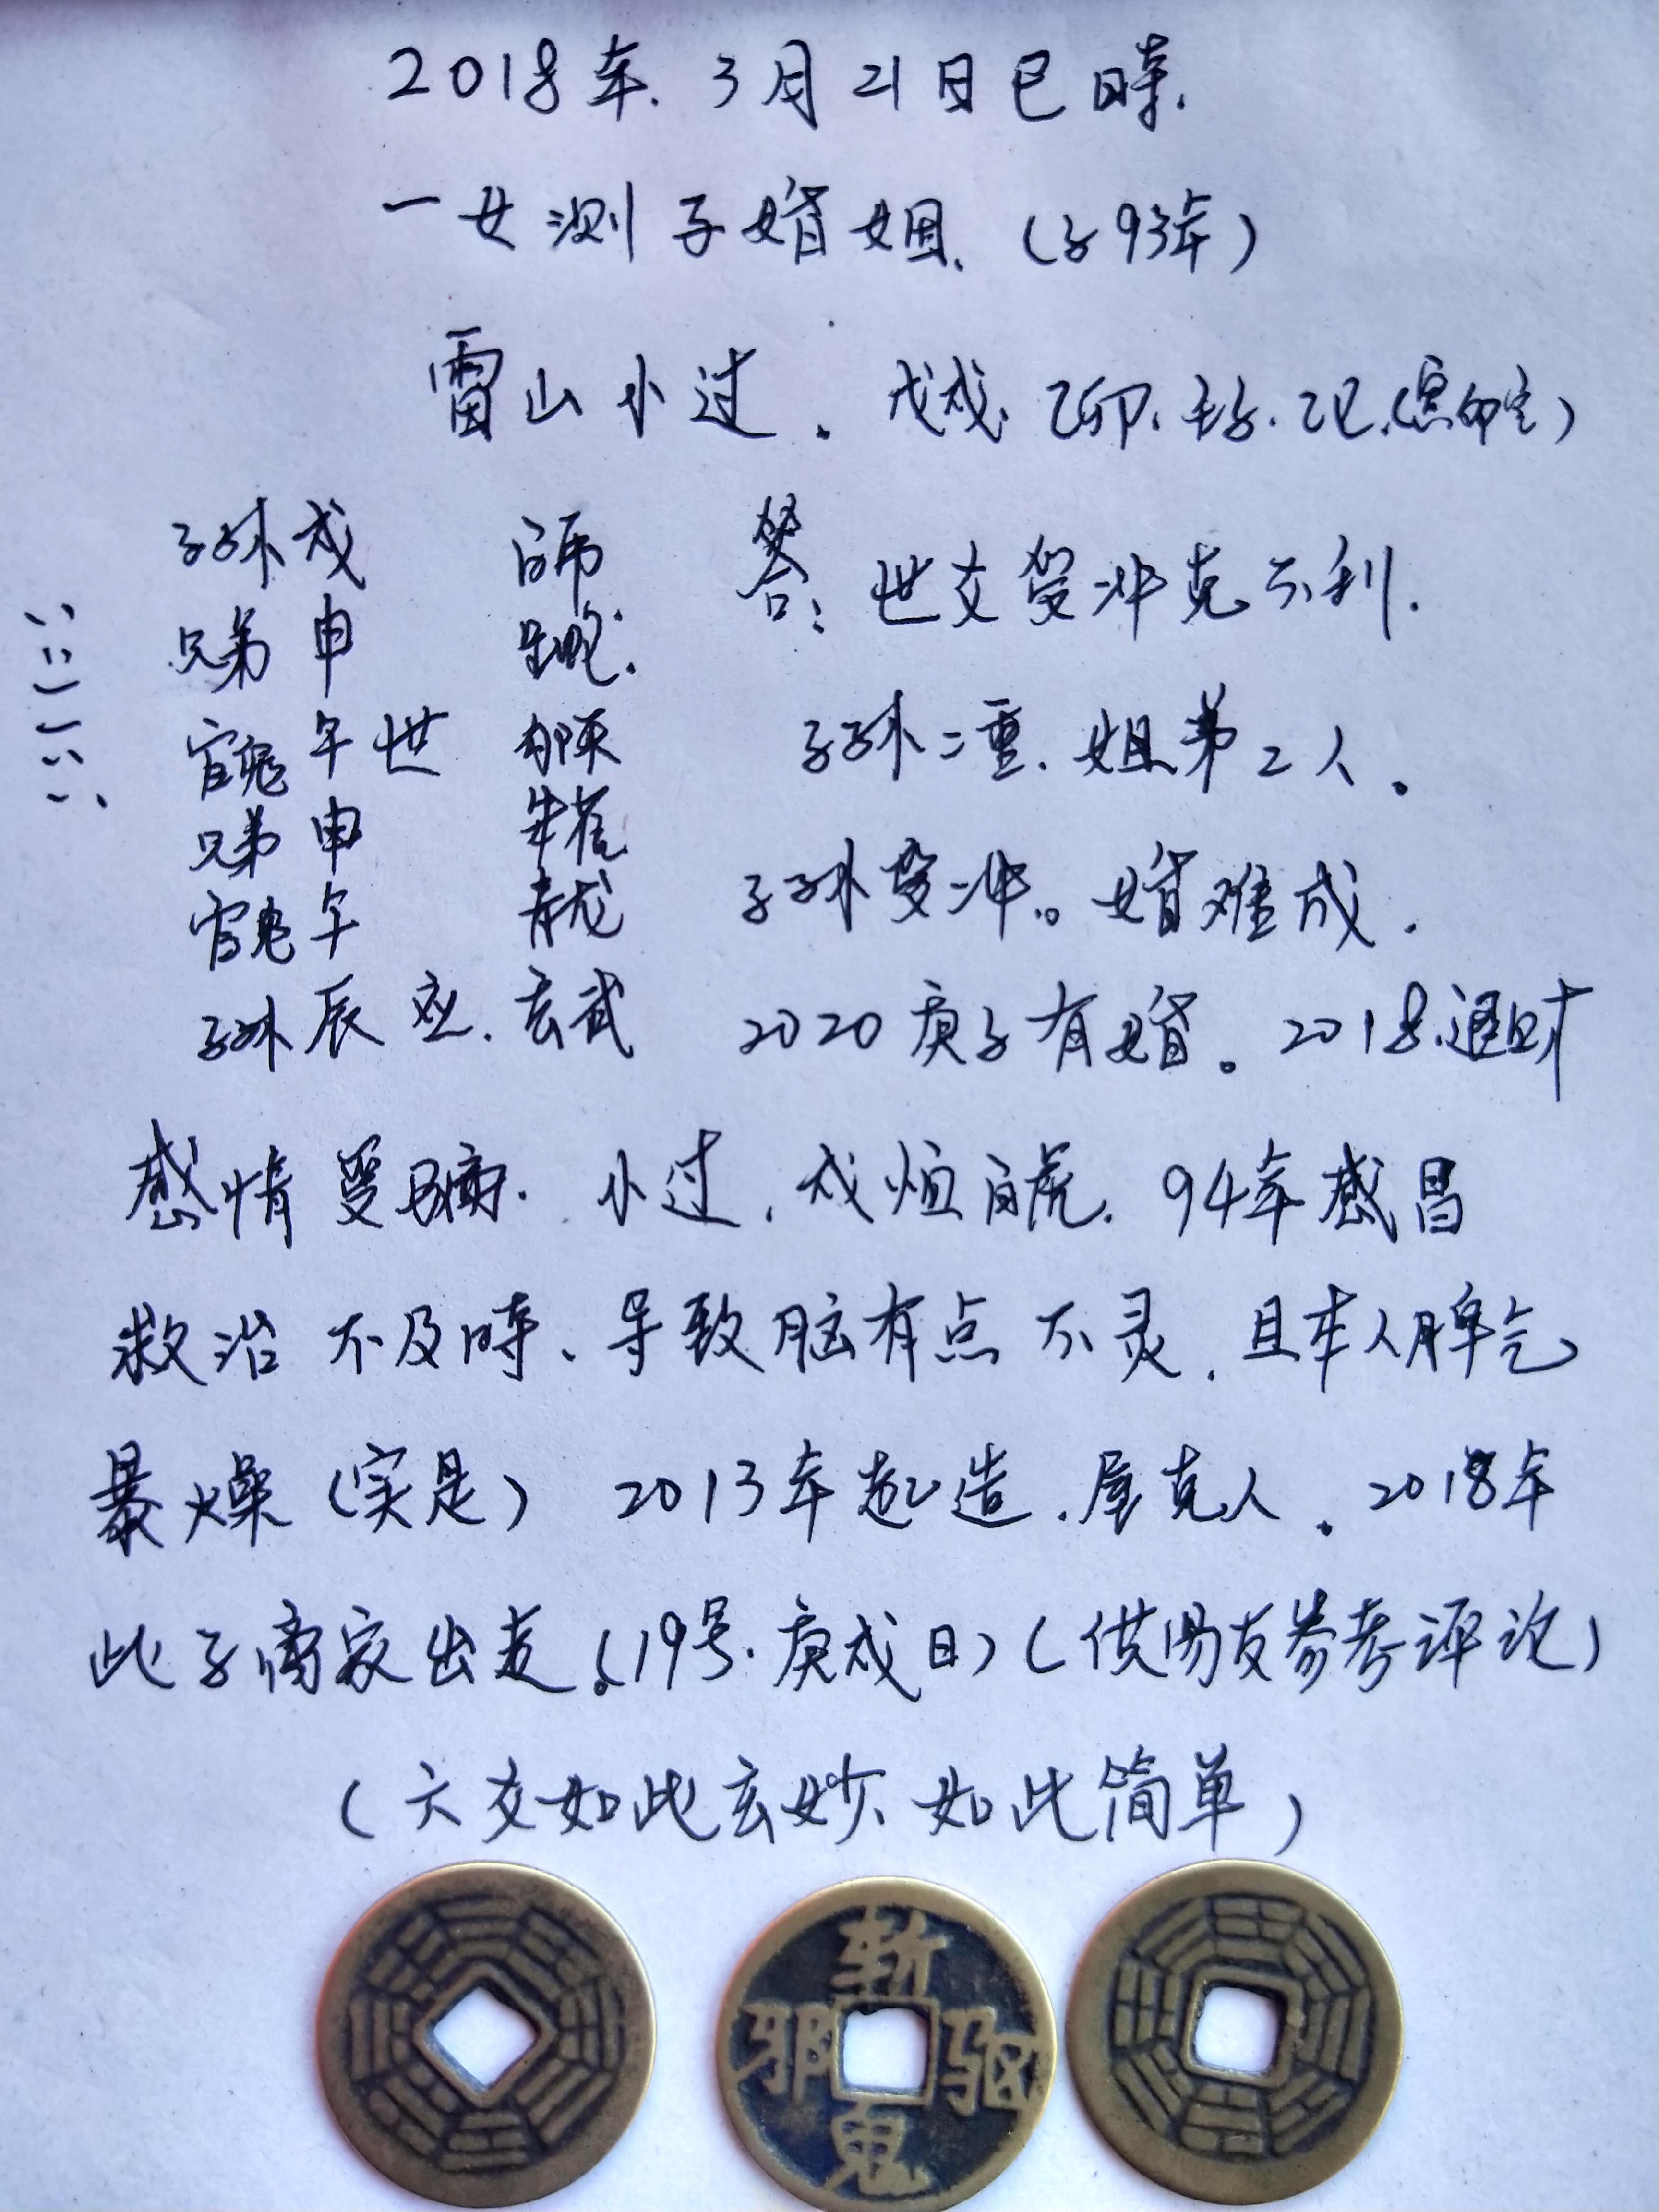 2018年.3月21日巳時.
一女测子婚姻.(子93年)
雷山小过.戊戌.乙卯.壬子.乙巳.(寅卯空)
子孙戌 白虎 答:世爻受冲克不利.
兄弟申 螣蛇.
官鬼午世 勾陈 子孙二重.姐弟2人.
兄弟申 朱雀
官鬼午 青龙 子孙受冲。婚难成.
子孙辰应.玄武 2020庚子有婚。2018.退财
感情受骗.小过.戌临白虎.94年感冒
救治不及時、导致脑有点不灵.且本人脾气
暴燥(实是)2013年起造.屋克人.2018年
此子离家出走.(19号.庚戌日)(供易友参考评论)
(六爻如此玄妙、如此简单)
斩
邪 驱
鬼